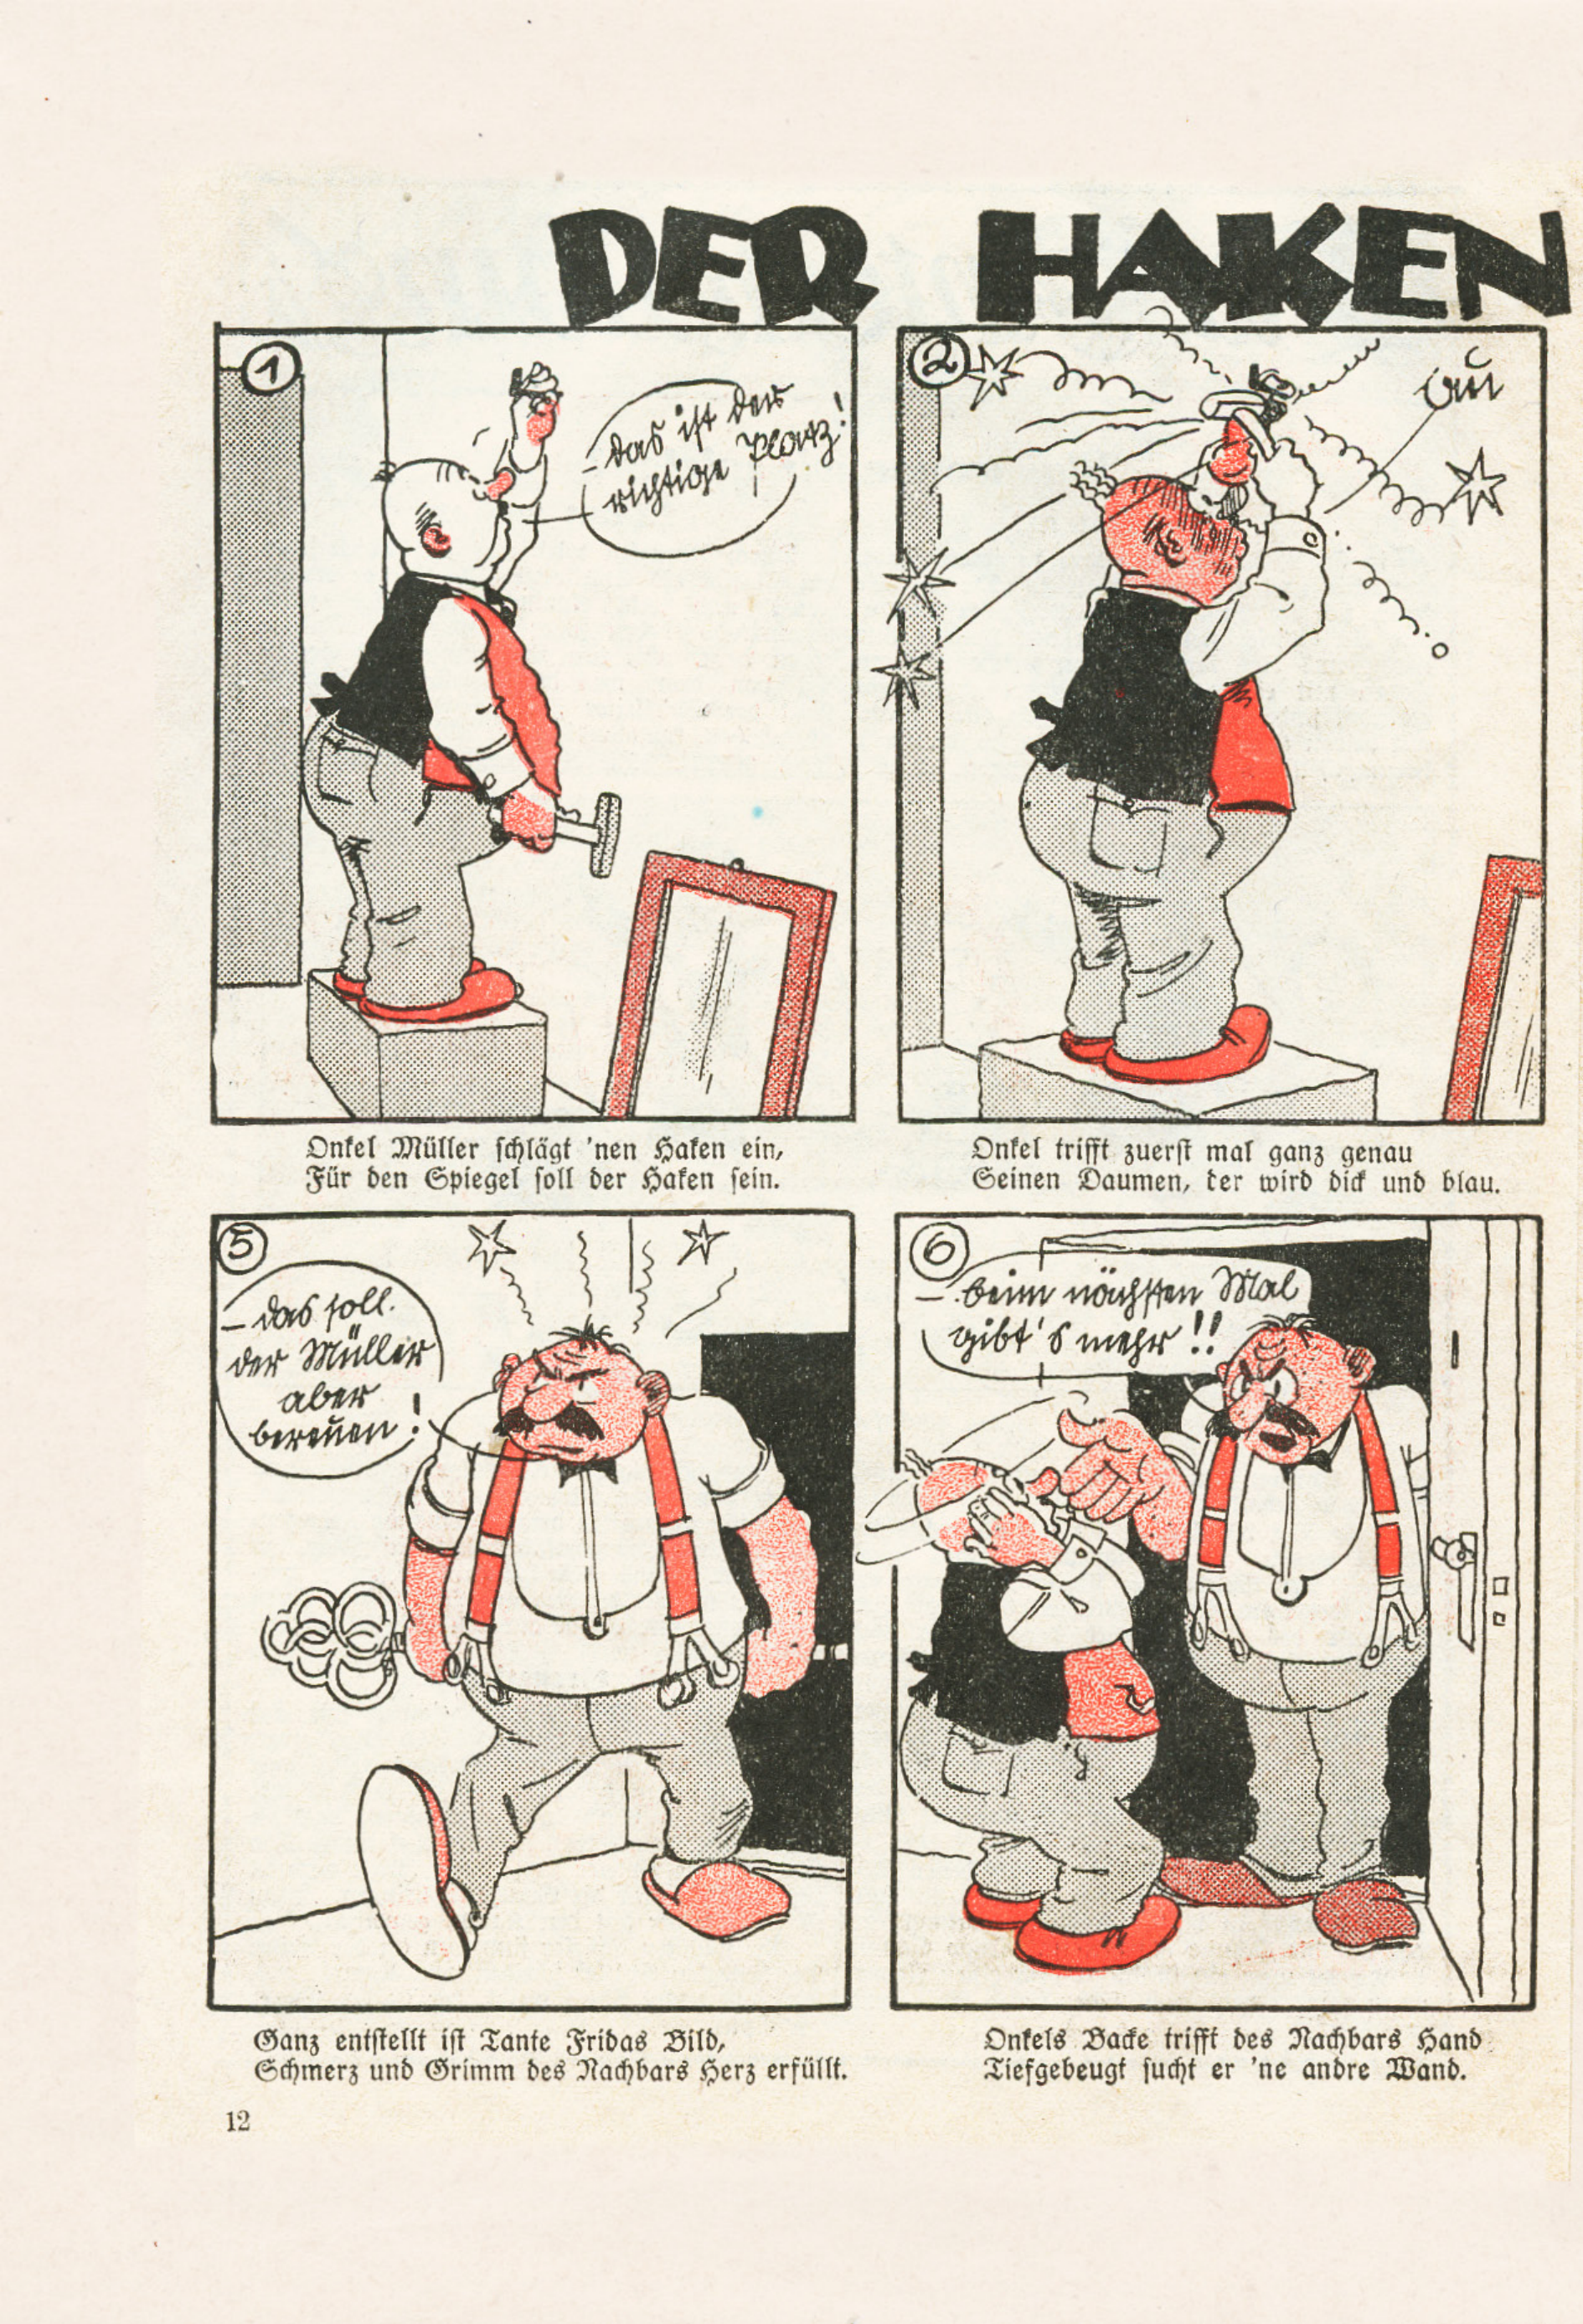 DER HAKEN
1
- das ist der
richtige Platz!
2
au
Onkel Müller schlägt 'nen Haken ein,
Für den Spiegel soll der Haken sein.
Onkel trifft zuerst mal ganz genau
Seinen Daumen, der wird dick und blau.
5
- das soll
der Müller
aber
bereuen!
6
- beim nächsten Mal
gibt's mehr!!
Ganz entstellt ist Tante Fridas Bild,
Schmerz und Grimm des Nachbars Herz erfüllt.
Onkels Backe trifft des Nachbars Hand
Tiefgebeugt sucht er 'ne andre Wand.
12